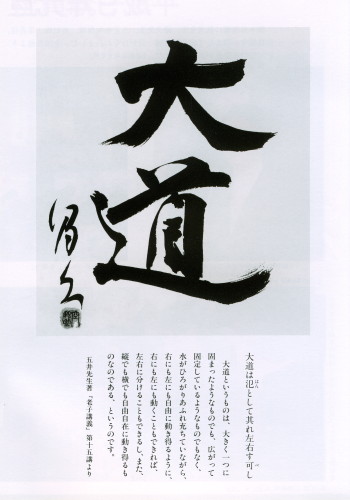 大道
昌久
大道は氾として其れ左右す可し
はん
べ
大道というものは、大きく一つに
固まったようなものでも、広がって
固定しているようなものでもなく、
水がひろがりあふれ充ちていながら、
右にも左にも自由に動き得るように、
右にも左にも動くこともできれば、
左右に分けることもできるし、また、
縦でも横でも自由自在に動き得るも
のなのである、というのです。
五井先生著『老子講義』第十五講より